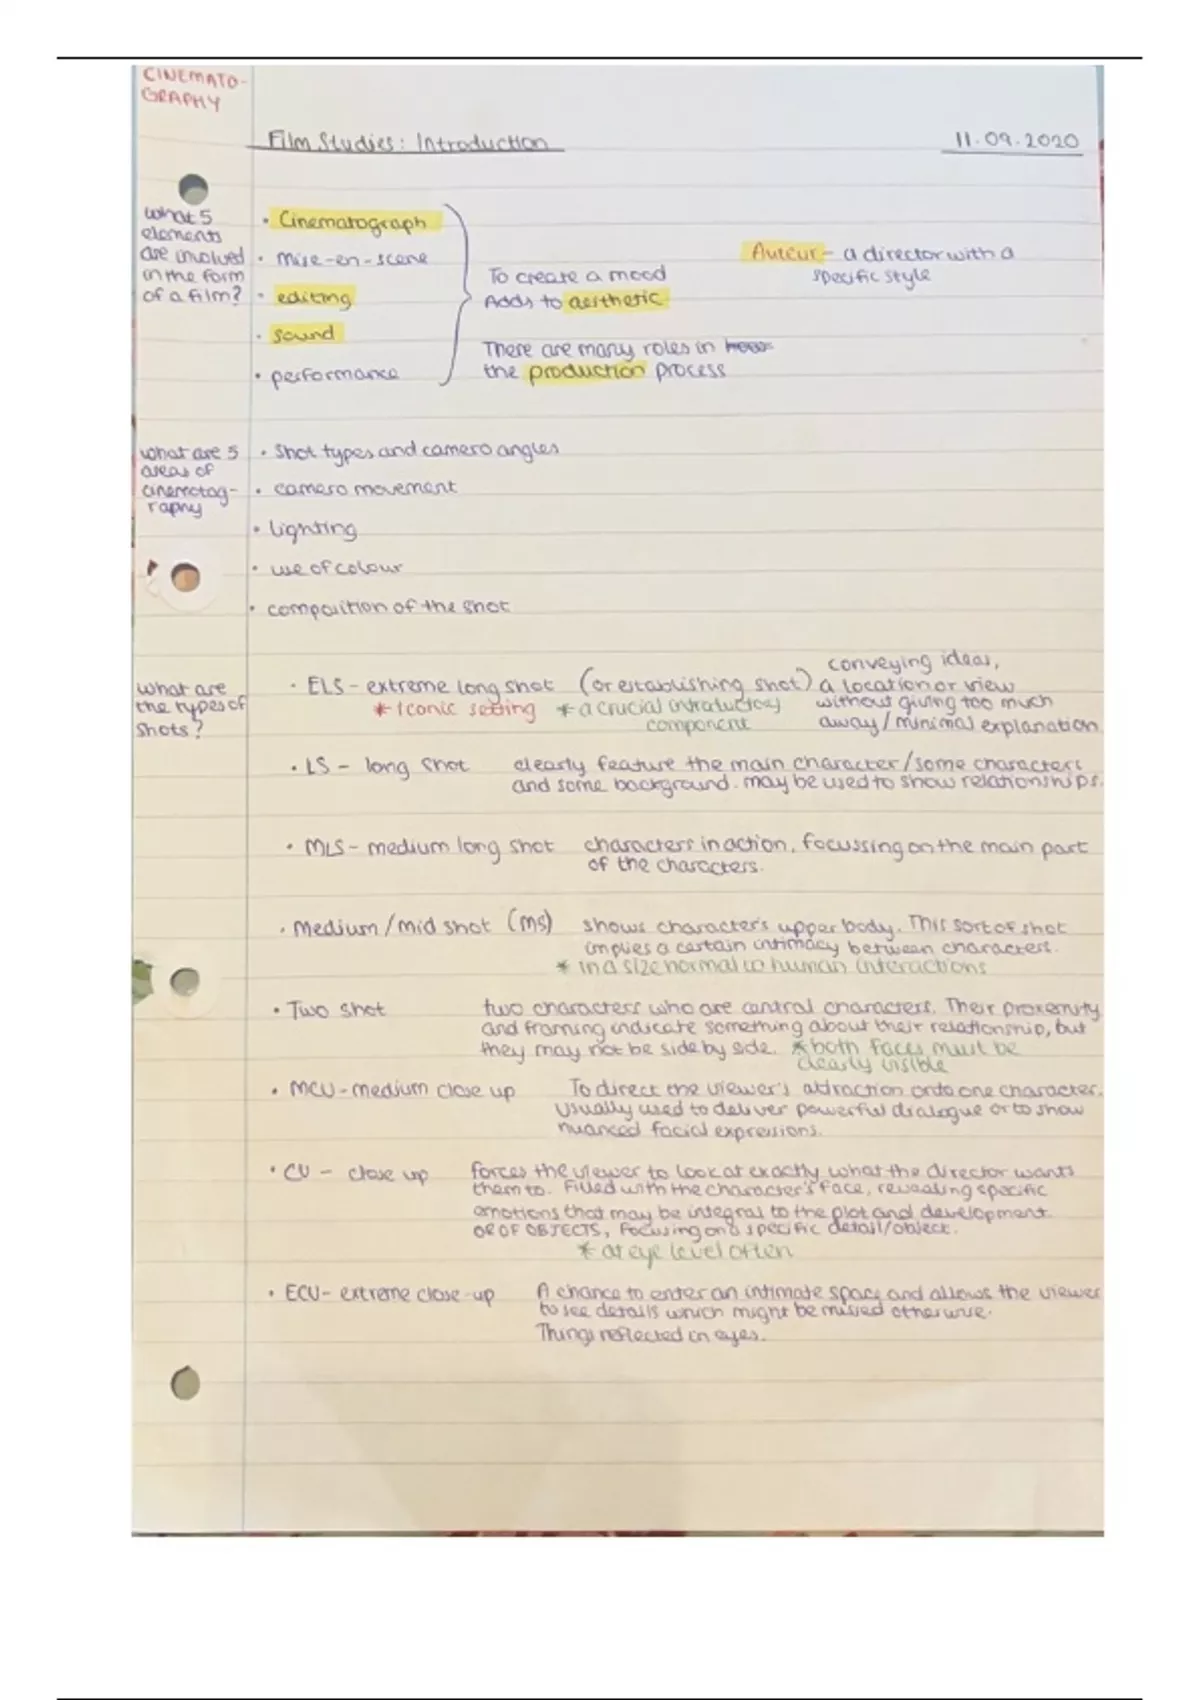 CINEMATO-
GRAPHY
Film Studies: Introduction 11.09.2020
What 5
elements
are involved
in the form
of a film?
• Cinematograph
• mise-en-scene
• editing
• sound
• performance
To create a mood
Adds to aesthetic
There are many roles in
the production process
Auteur - a director with a
specific style
what are 5
areas of
cinematog-
raphy
• Shot types and camera angles
• camera movement
• lighting
• use of colour
• composition of the shot
what are
the types of
shots?
• ELS - extreme long shot (or establishing shot)
* Iconic setting * a crucial introductory
component
conveying ideas,
a location or view
without giving too much
away/minimal explanation
• LS - long shot clearly feature the main character/some characters
and some background. may be used to show relationships.
• MLS - medium long shot characters in action, focussing on the main part
of the characters.
• Medium/mid shot (MS) shows character's upper body. This sort of shot
implies a certain intimacy between characters.
* in a size normal to human interactions
• Two shot two characters who are central characters. Their proxemity
and framing indicate something about their relationship, but
they may not be side by side. * both faces must be
clearly visible
• MCU - medium close up To direct the viewer's attraction onto one character.
Usually used to deliver powerful dialogue or to show
nuanced facial expressions.
• CU - close up forces the viewer to look at exactly what the director wants
them to. Filled with the character's face, revealing specific
emotions that may be integral to the plot and development.
OR OF OBJECTS, Focusing on a specific detail/object.
* at eye level often
• ECU - extreme close-up A chance to enter an intimate space and allows the viewer
to see details which might be missed otherwise.
Things reflected in eyes.